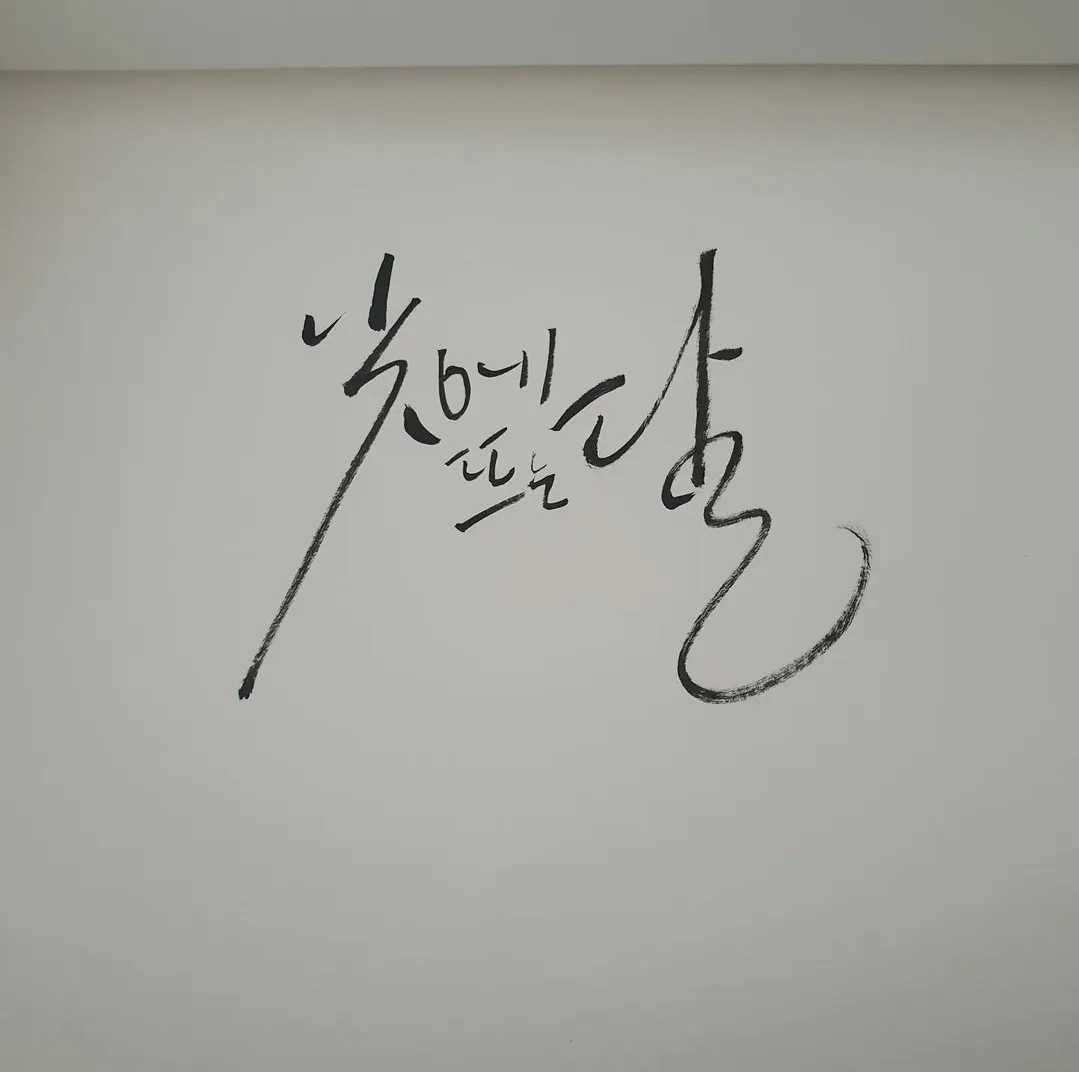 낮에
뜨는
달